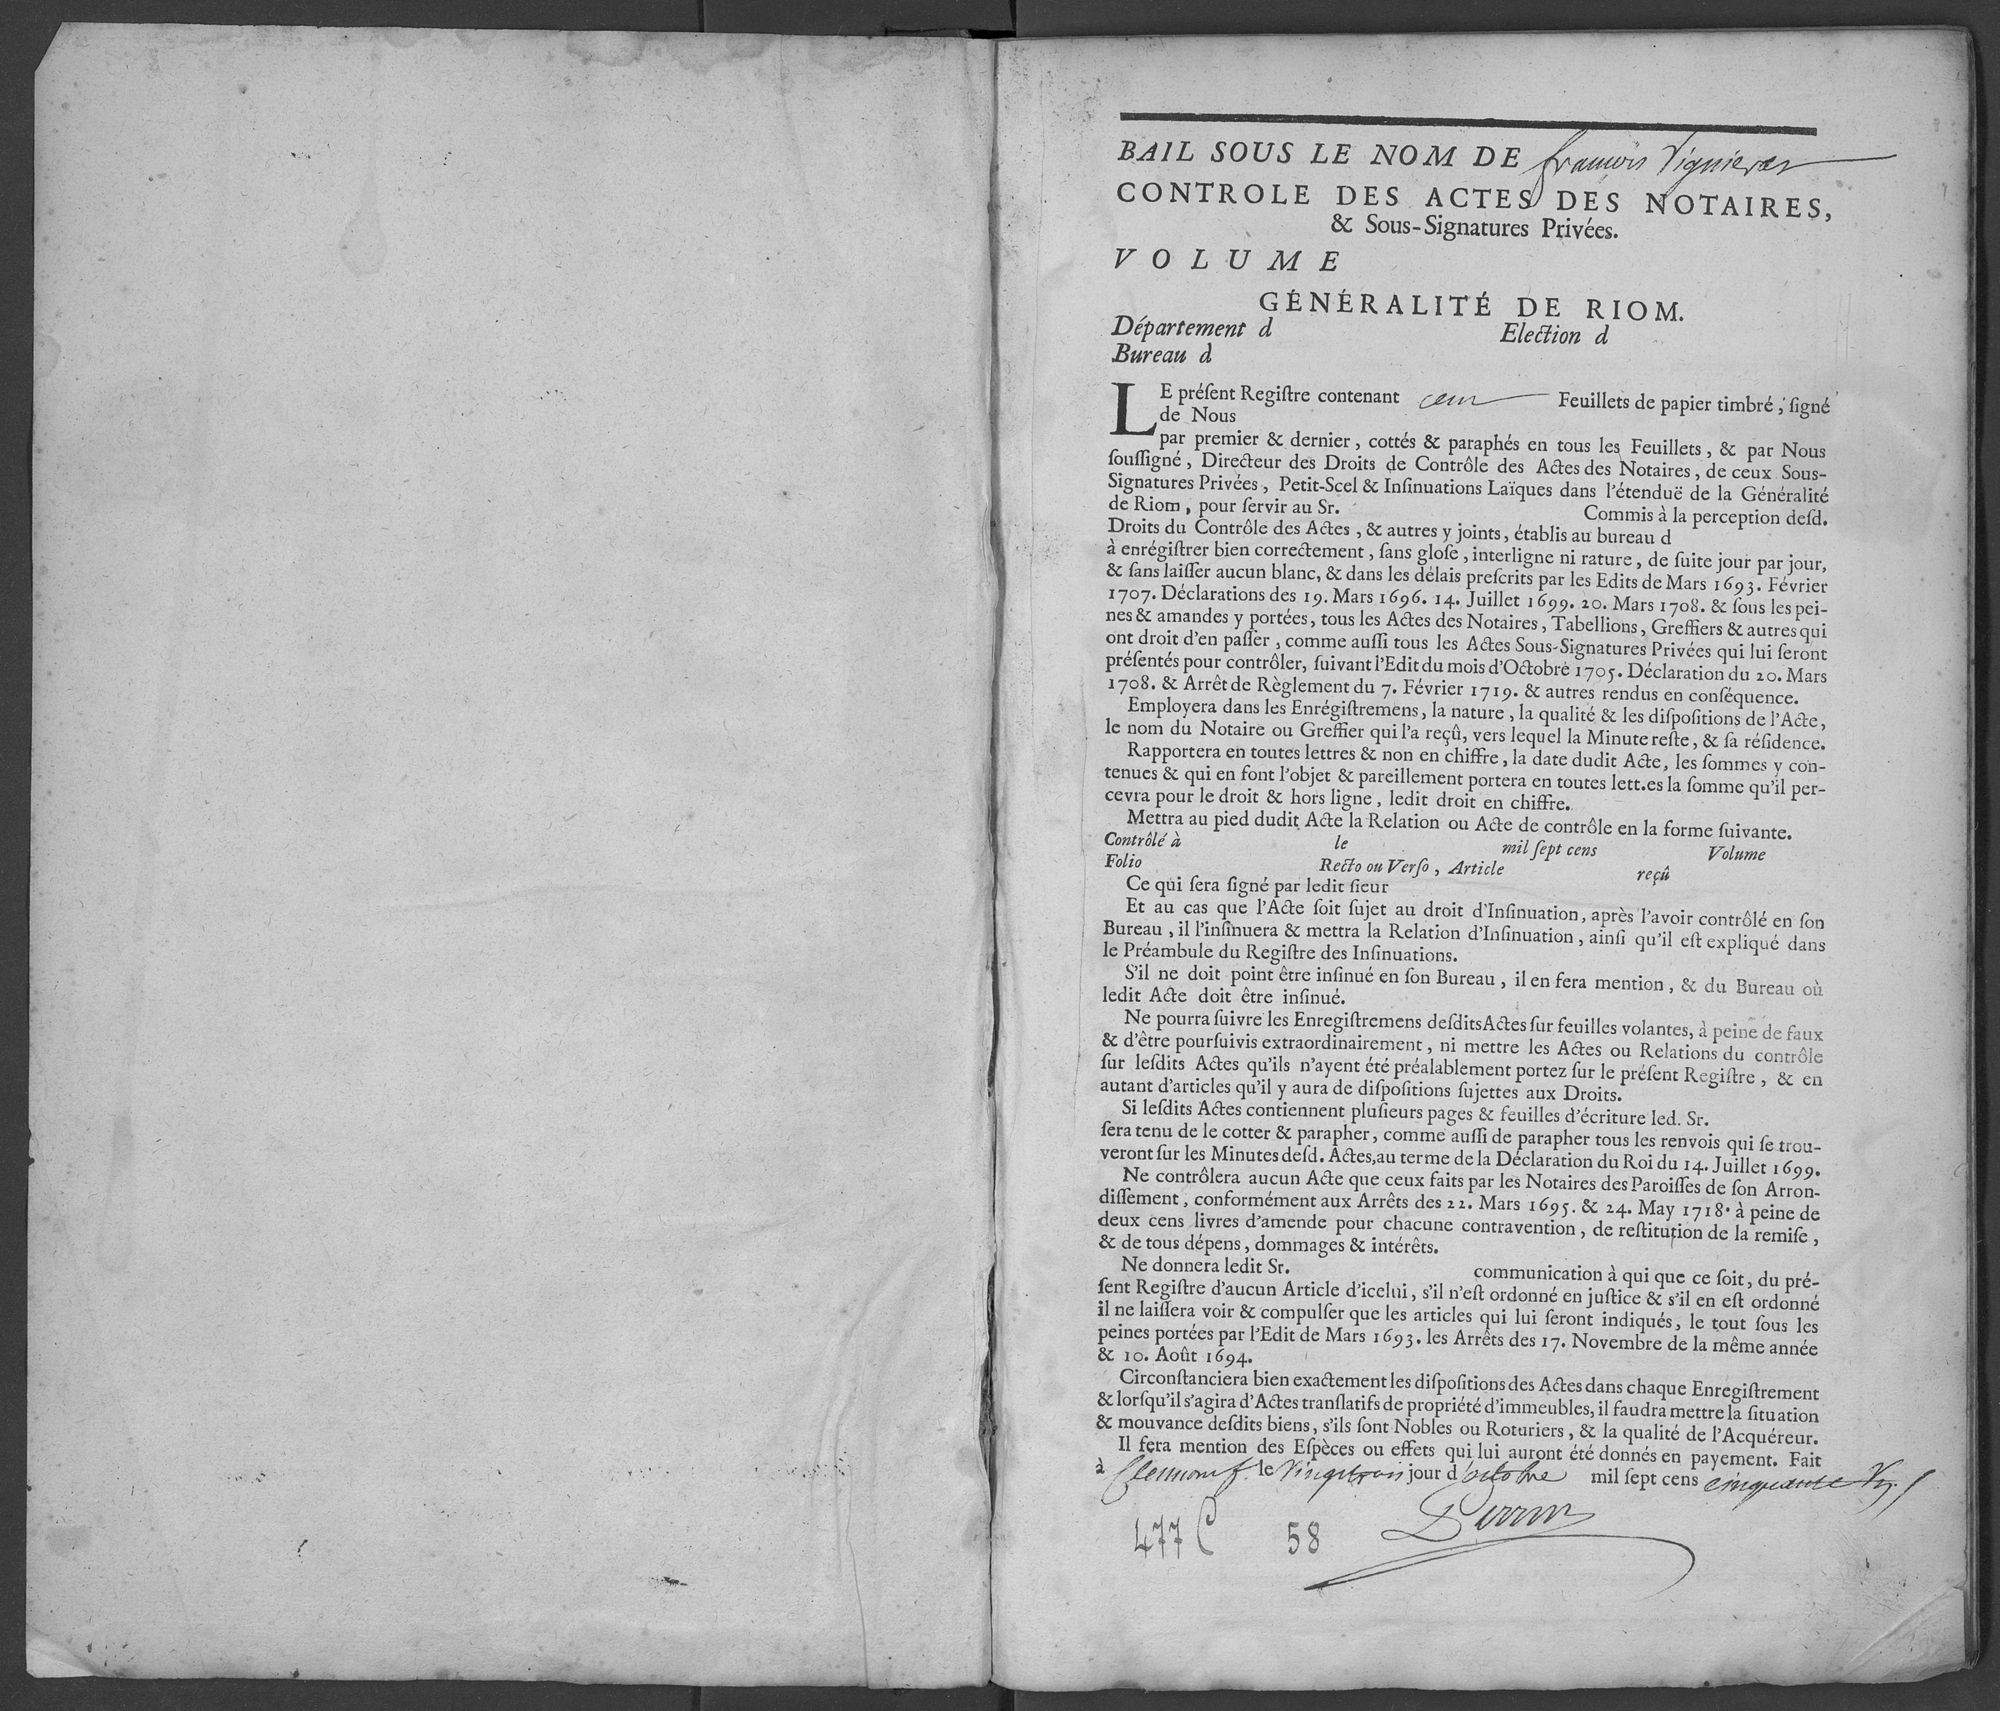 BAIL SOUS LE NOM DE françois Vignieres
CONTROLE DES ACTES DES NOTAIRES,
& Sous-Signatures Privées.
VOLUME
GÉNÉRALITÉ DE RIOM.
Département d Election d
Bureau d
LE préſent Regiſtre contenant cent Feuillets de papier timbré, ſigné
de Nous
par premier & dernier, cottés & paraphés en tous les Feuillets, & par Nous
ſouſſigné, Directeur des Droits de Contrôle des Actes des Notaires, de ceux Sous-
Signatures Privées, Petit-Scel & Inſinuations Laïques dans l'étenduë de la Généralité
de Riom, pour ſervir au Sr. Commis à la perception deſd.
Droits du Contrôle des Actes, & autres y joints, établis au bureau d
à enrégiſtrer bien correctement, ſans gloſe, interligne ni rature, de ſuite jour par jour,
& ſans laiſſer aucun blanc, & dans les délais preſcrits par les Edits de Mars 1693. Février
1707. Déclarations des 19. Mars 1696. 14. Juillet 1699. 20. Mars 1708. & ſous les pei-
nes & amandes y portées, tous les Actes des Notaires, Tabellions, Greffiers & autres qui
ont droit d'en paſſer, comme auſſi tous les Actes Sous-Signatures Privées qui lui ſeront
préſentés pour contrôler, ſuivant l'Edit du mois d'Octobre 1705. Déclaration du 20. Mars
1708. & Arrêt de Règlement du 7. Février 1719. & autres rendus en conſéquence.
Employera dans les Enrégiſtremens, la nature, la qualité & les diſpoſitions de l'Acte,
le nom du Notaire ou Greffier qui l'a reçû, vers lequel la Minute reſte, & ſa réſidence.
Rapportera en toutes lettres & non en chiffre, la date dudit Acte, les ſommes y con-
tenues & qui en font l'objet & pareillement portera en toutes lett.es la ſomme qu'il per-
cevra pour le droit & hors ligne, ledit droit en chiffre.
Mettra au pied dudit Acte la Relation ou Acte de contrôle en la forme ſuivante.
Contrôlé à le mil ſept cens Volume
Folio Recto ou Verſo, Article reçû
Ce qui ſera ſigné par ledit ſieur
Et au cas que l'Acte ſoit ſujet au droit d'Inſinuation, après l'avoir contrôlé en ſon
Bureau, il l'inſinuera & mettra la Relation d'Inſinuation, ainſi qu'il eſt expliqué dans
le Préambule du Regiſtre des Inſinuations.
S'il ne doit point être inſinué en ſon Bureau, il en fera mention, & du Bureau où
ledit Acte doit être inſinué.
Ne pourra ſuivre les Enregiſtremens deſdits Actes ſur feuilles volantes, à peine de faux
& d'être pourſuivis extraordinairement, ni mettre les Actes ou Relations du contrôle
ſur leſdits Actes qu'ils n'ayent été préalablement portez ſur le préſent Regiſtre, & en
autant d'articles qu'il y aura de diſpoſitions ſujettes aux Droits.
Si leſdits Actes contiennent pluſieurs pages & feuilles d'écriture led. Sr.
ſera tenu de le cotter & parapher, comme auſſi de parapher tous les renvois qui ſe trou-
veront ſur les Minutes deſd. Actes, au terme de la Déclaration du Roi du 14. Juillet 1699.
Ne contrôlera aucun Acte que ceux faits par les Notaires des Paroiſſes de ſon Arron-
diſſement, conformément aux Arrêts des 22. Mars 1695. & 24. May 1718. à peine de
deux cens livres d'amende pour chacune contravention, de reſtitution de la remiſe,
& de tous dépens, dommages & intérêts.
Ne donnera ledit Sr. communication à qui que ce ſoit, du pré-
ſent Regiſtre d'aucun Article d'icelui, s'il n'eſt ordonné en juſtice & s'il en eſt ordonné
il ne laiſſera voir & compulſer que les articles qui lui ſeront indiqués, le tout ſous les
peines portées par l'Edit de Mars 1693. les Arrêts des 17. Novembre de la même année
& 10. Août 1694.
Circonſtanciera bien exactement les diſpoſitions des Actes dans chaque Enregiſtrement
& lorſqu'il s'agira d'Actes tranſlatifs de propriété d'immeubles, il faudra mettre la ſituation
& mouvance deſdits biens, s'ils ſont Nobles ou Roturiers, & la qualité de l'Acquéreur.
Il fera mention des Eſpèces ou effets qui lui auront été donnés en payement. Fait
à Clermont le Vingttrois jour d'octobre mil ſept cens cinquante
Perrin
477 C 58